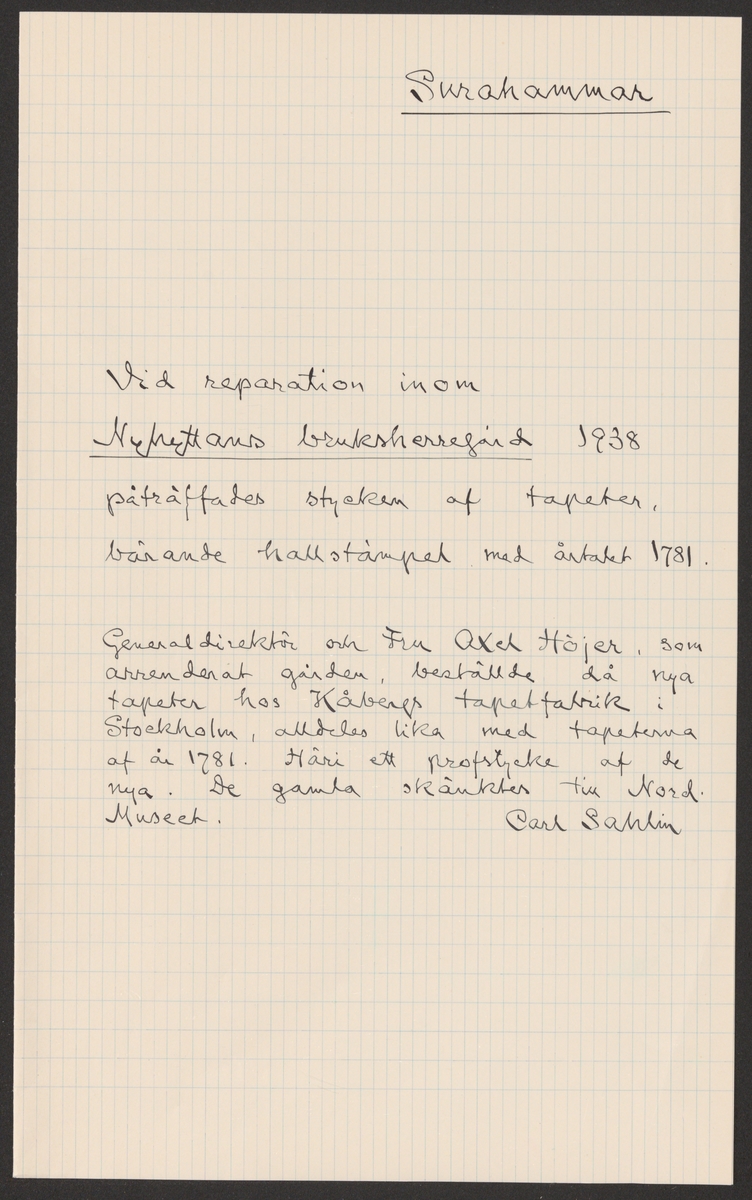 Surahammar
Vid reparation inom
Nyhyttans bruksherregård 1938
påträffades stycken af tapeter,
bärande hallstämpel med årtalet 1781.
Generaldirektör och Fru Axel Höjer, som
arrenderat gården, beställde då nya
tapeter hos Kåbergs tapetfabrik i
Stockholm, alldeles lika med tapeterna
af år 1781. Häri ett profstycke af de
nya. De gamla skänktes till Nord.
Museet. Carl Sahlin